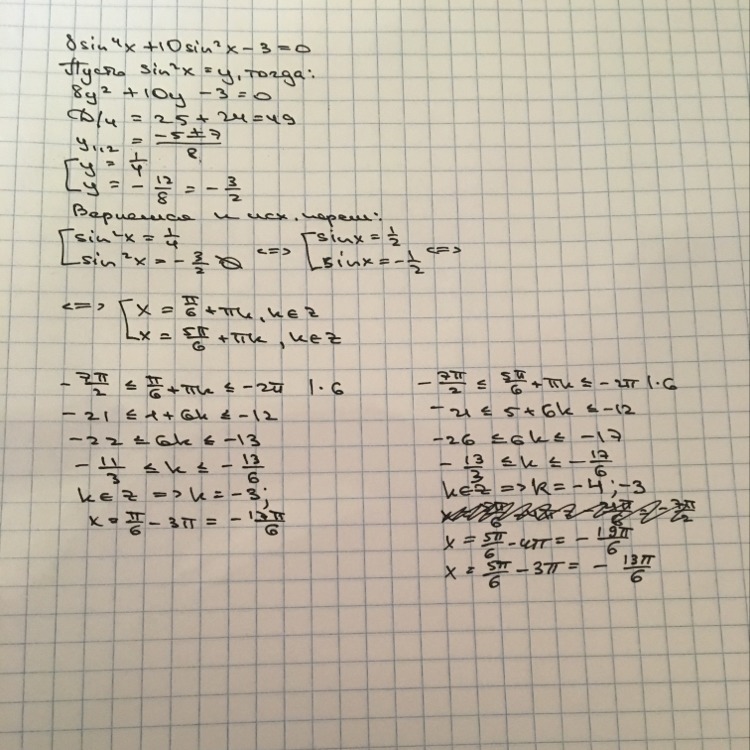 8sin⁴x + 10sin²x − 3 = 0
Пусть sin²x = y, тогда:
8y² + 10y − 3 = 0
D/4 = 25 + 24 = 49
y₁,₂ = (−5 ± 7)/8
[ y = 1/4
y = −12/8 = −3/2
Вернемся к исх. перем:
[ sin²x = 1/4 ; sin²x = −3/2 ∅ <=> [ sinx = 1/2 ; sinx = −1/2 <=>
<=> [ x = π/6 + πk, k∈Z
x = 5π/6 + πk, k∈Z
−7π/2 ≤ π/6 + πk ≤ −2π | · 6
−21 ≤ 1 + 6k ≤ −12
−22 ≤ 6k ≤ −13
−11/3 ≤ k ≤ −13/6
k∈Z => k = −3;
x = π/6 − 3π = −17π/6
−7π/2 ≤ 5π/6 + πk ≤ −2π | · 6
−21 ≤ 5 + 6k ≤ −12
−26 ≤ 6k ≤ −17
−13/3 ≤ k ≤ −17/6
k∈Z => k = −4; −3
x = 5π/6 − 4π = −19π/6
x = 5π/6 − 3π = −13π/6